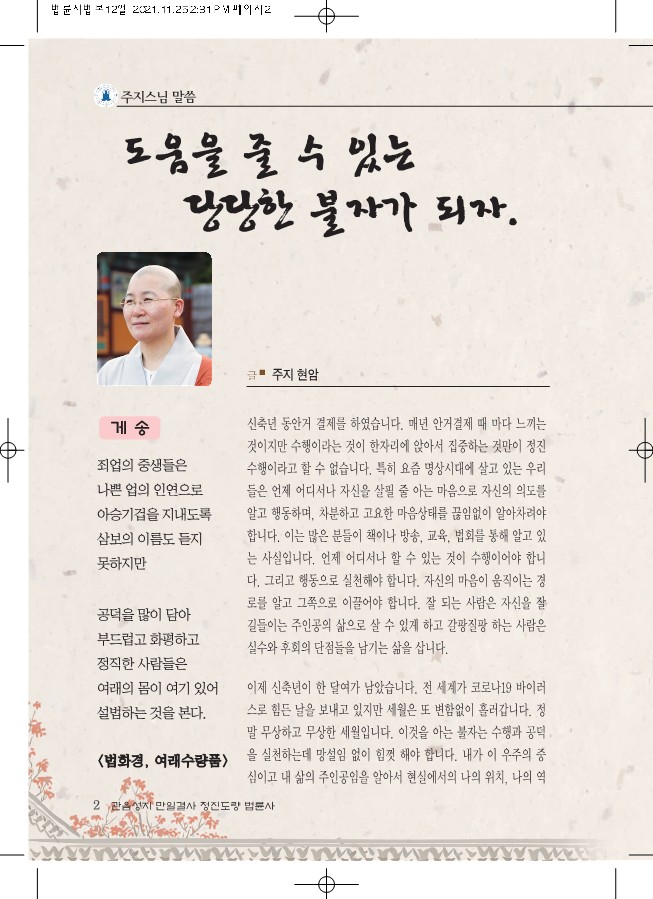 법륜사법보12월 2021.11.26 2:31 PM 페이지2
주지스님 말씀
도움을 줄 수 있는
당당한 불자가 되자.
글 주지 현암
게 송
죄업의 중생들은
나쁜 업의 인연으로
아승기겁을 지내도록
삼보의 이름도 듣지
못하지만
공덕을 많이 닦아
부드럽고 화평하고
정직한 사람들은
여래의 몸이 여기 있어
설법하는 것을 본다.
<법화경, 여래수량품>
신축년 동안거 결제를 하였습니다. 매년 안거결제 때 마다 느끼는
것이지만 수행이라는 것이 한자리에 앉아서 집중하는 것만이 정진
수행이라고 할 수 없습니다. 특히 요즘 명상시대에 살고 있는 우리
들은 언제 어디서나 자신을 살필 줄 아는 마음으로 자신의 의도를
알고 행동하며, 차분하고 고요한 마음상태를 끊임없이 알아차려야
합니다. 이는 많은 분들이 책이나 방송, 교육, 법회를 통해 알고 있
는 사실입니다. 언제 어디서나 할 수 있는 것이 수행이어야 합니
다. 그리고 행동으로 실천해야 합니다. 자신의 마음이 움직이는 경
로를 알고 그쪽으로 이끌어야 합니다. 잘 되는 사람은 자신을 잘
길들이는 주인공의 삶으로 살 수 있게 하고 갈팡질팡 하는 사람은
실수와 후회의 단점들을 남기는 삶을 삽니다.
이제 신축년이 한 달여가 남았습니다. 전 세계가 코로나19 바이러
스로 힘든 날을 보내고 있지만 세월은 또 변함없이 흘러갑니다. 정
말 무상하고 무상한 세월입니다. 이것을 아는 불자는 수행과 공덕
을 실천하는데 망설임 없이 힘껏 해야 합니다. 내가 이 우주의 중
심이고 내 삶의 주인공임을 알아서 현실에서의 나의 위치, 나의 역
2 관음성지 만일결사 정진도량 법륜사